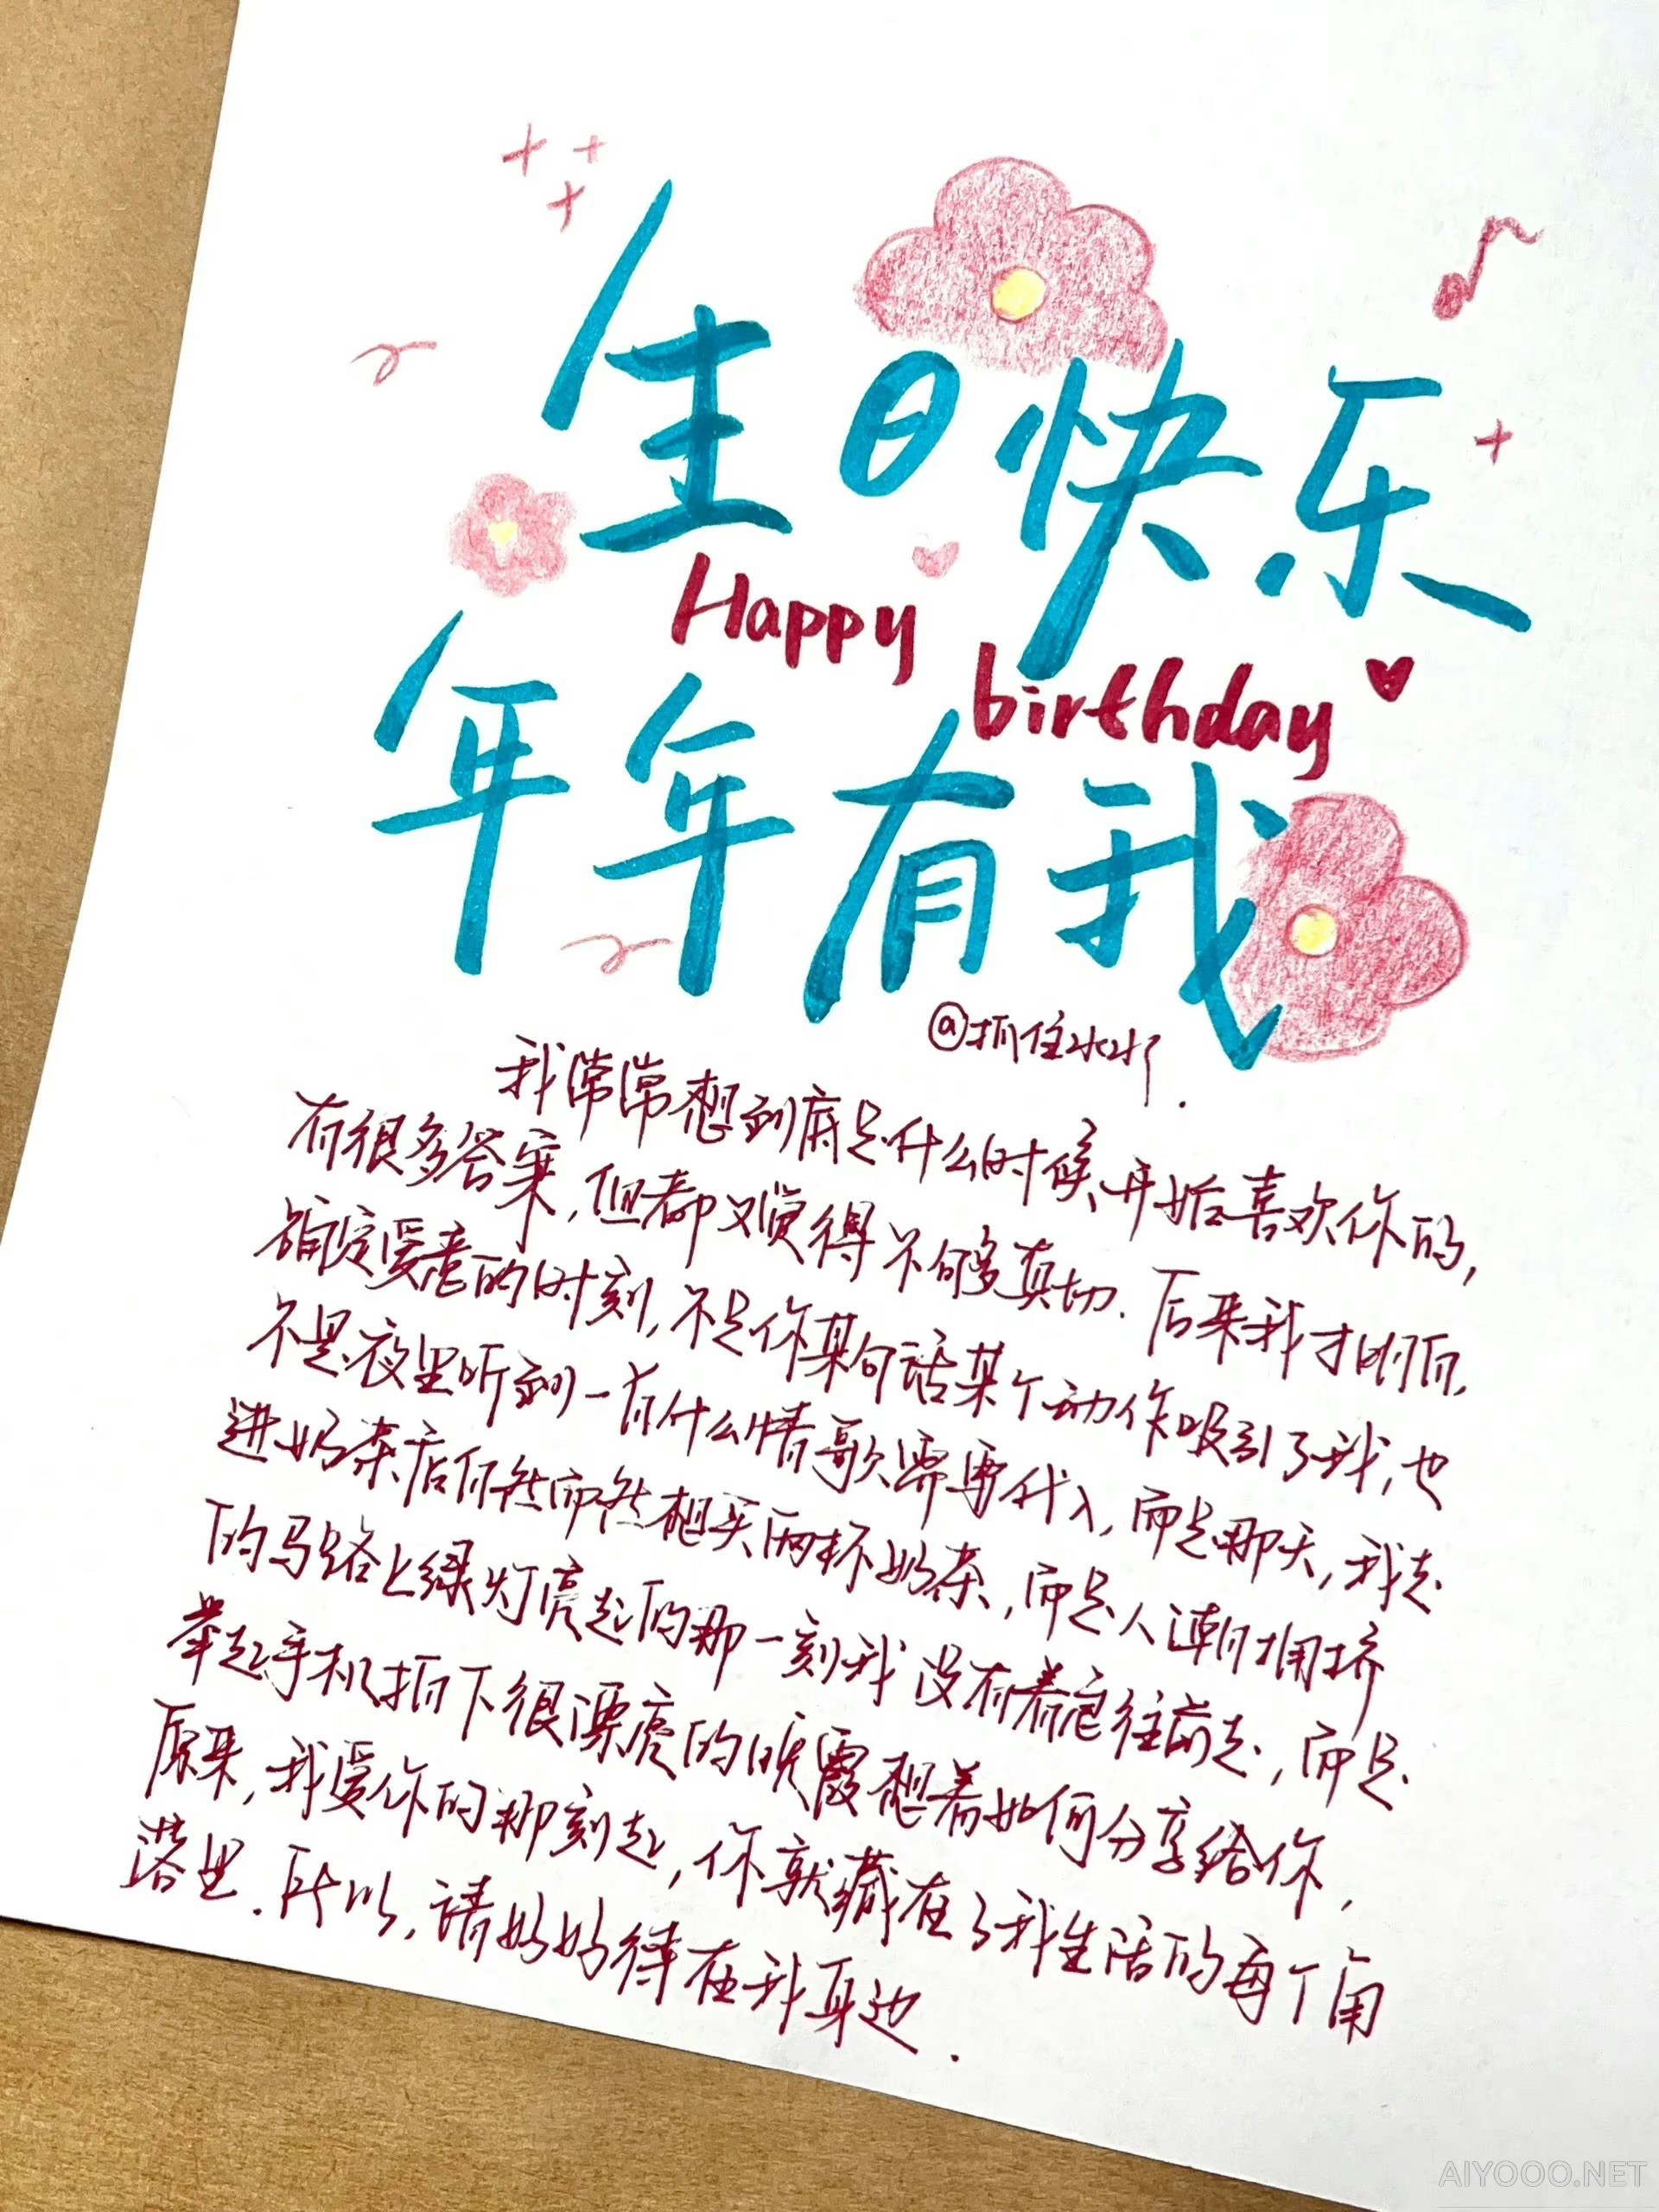 生日快乐
Happy
birthday
年年有我
@抓住水水
我常常想到底是什么时候开始喜欢你的,
有很多答案,但都又觉得不够真切.后来我才明白,
确定爱意的时刻,不是你某句话某个动作吸引了我,也
不是夜里听到一首什么情歌需要代入,而是那天,我走
进奶茶店自然而然想买两杯奶茶,而是人潮拥挤
的马路上绿灯亮起的那一刻我没有着急往前走,而是
举起手机拍下很漂亮的晚霞想着如何分享给你,
原来,我爱你的那刻起,你就藏在了我生活的每个角
落里.所以,请好好待在我身边.
AIYOOO.NET